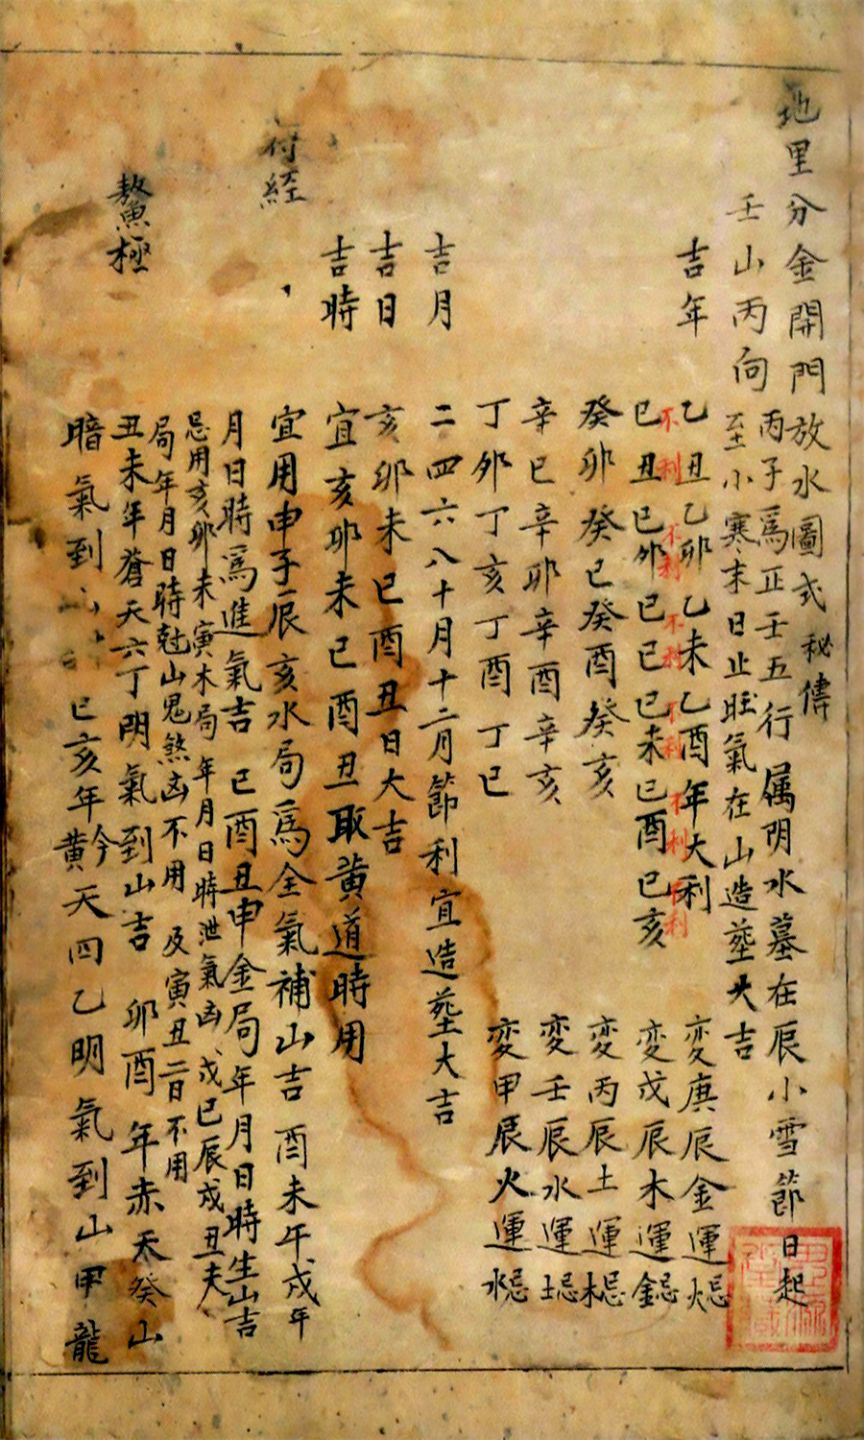 地里分金開門放水圖式秘傳
壬山丙向 丙子爲正壬五行属阴水墓在辰小雪節日起
至小寒末日止旺氣在山造塟大吉
吉年 乙丑乙卯乙未乙酉年大利 変庚辰金運忌火
不利 不利 不利 不利 不利 不利
己丑己卯己巳己未己酉己亥 変戊辰木運忌金
癸卯癸巳癸酉癸亥 変丙辰土運忌木
辛巳辛卯辛酉辛亥 変壬辰水運忌土
丁卯丁亥丁酉丁巳 変甲辰火運忌水
吉月 二四六八十月十二月節利宜造塟大吉
吉日 亥卯未巳酉丑日大吉
吉時 宜亥卯未巳酉丑取黄道時用
符經 宜用申子辰亥水局爲全氣補山吉 酉未午戌年
月日時爲進氣吉 巳酉丑申金局年月日時生山吉
忌用亥卯未寅木局年月日時泄氣凶戊巳辰戍丑未
局年月日時尅山鬼煞凶不用 及寅丑二日不用
鰲極 丑未年蒼天六丁阴氣到山吉 卯酉年赤天癸山
暗氣到 巳亥年黅天四乙明氣到山甲龍